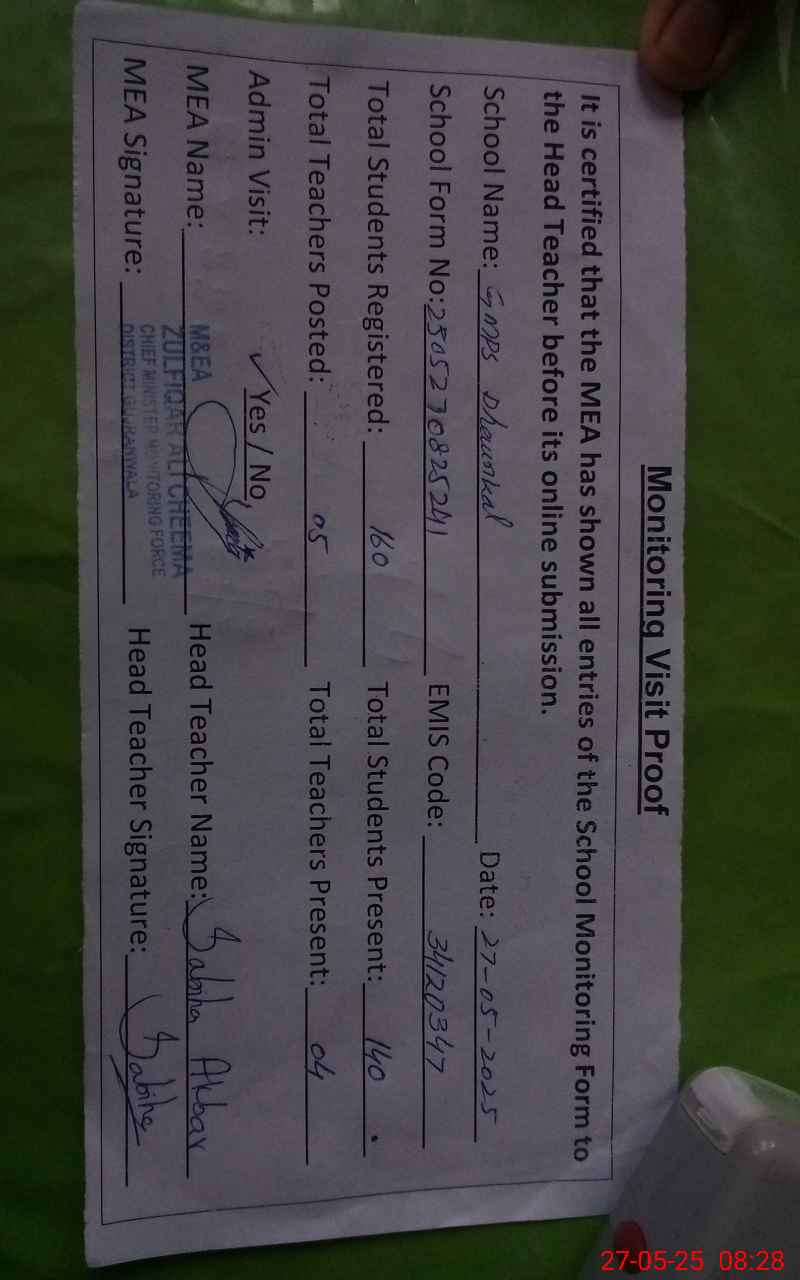 Monitoring Visit Proof
It is certified that the MEA has shown all entries of the School Monitoring Form to
the Head Teacher before its online submission.
School Name: GMPS Dhaunkal Date: 27-05-2025
School Form No: 2505270825241 EMIS Code: 34120347
Total Students Registered: 160 Total Students Present: 140
Total Teachers Posted: 05 Total Teachers Present: 04
Admin Visit: ✓Yes / No
MEA Name: Head Teacher Name: Sabiha Akbar
MEA Signature: Head Teacher Signature: Sabiha
M&EA
ZULFIQAR ALI CHEEMA
CHIEF MINISTER MONITORING FORCE
DISTRICT GUJRANWALA
27-05-25 08:28